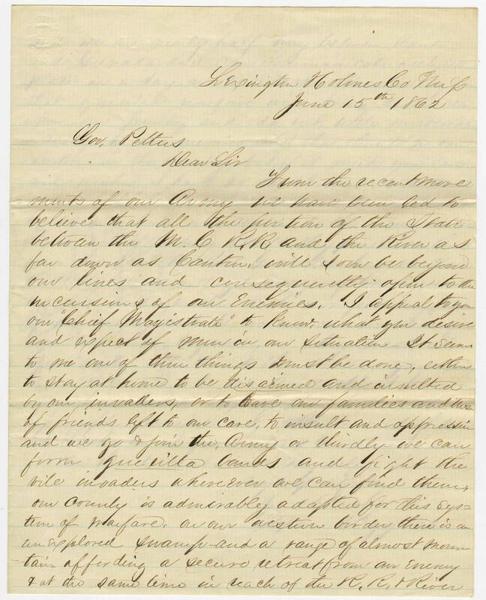 Lexington Holmes Co Miss
June 15th 1862
Gov. Pettus
Dear Sir
From the recent move
ments of our Army we have been led to
believe that all the portion of the State
between the M. C R.R and the River as
far down as Canton, will soon be beyond
our lines and consequently open to the
incursions of our Enemies. I appeal to you
our "Chief Magistrate" to know, what you desire
and expect of men in our situation It seems
to me one of three things must be done, either
to stay at home to be disarmed and insulted
by our invaders, or to leave our families and those
of friends left to our care, to insult and oppression
and we go & join the Army or thirdly we can
form guerilla bands and fight the
vile invaders wherever we can find them,
our county is admirably adapted for this sys-
tem of warfare. on our western border there is an
unexplored swamp and a range of almost moun
tain affording a secure retreat from an enemy
& at the same time in reach of the R. R. & River